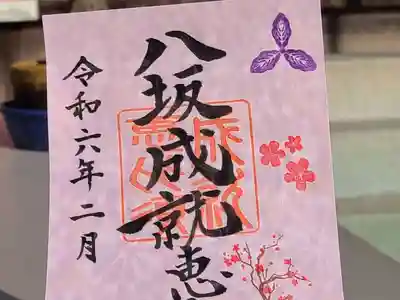 八坂成就恵
令和六年二月